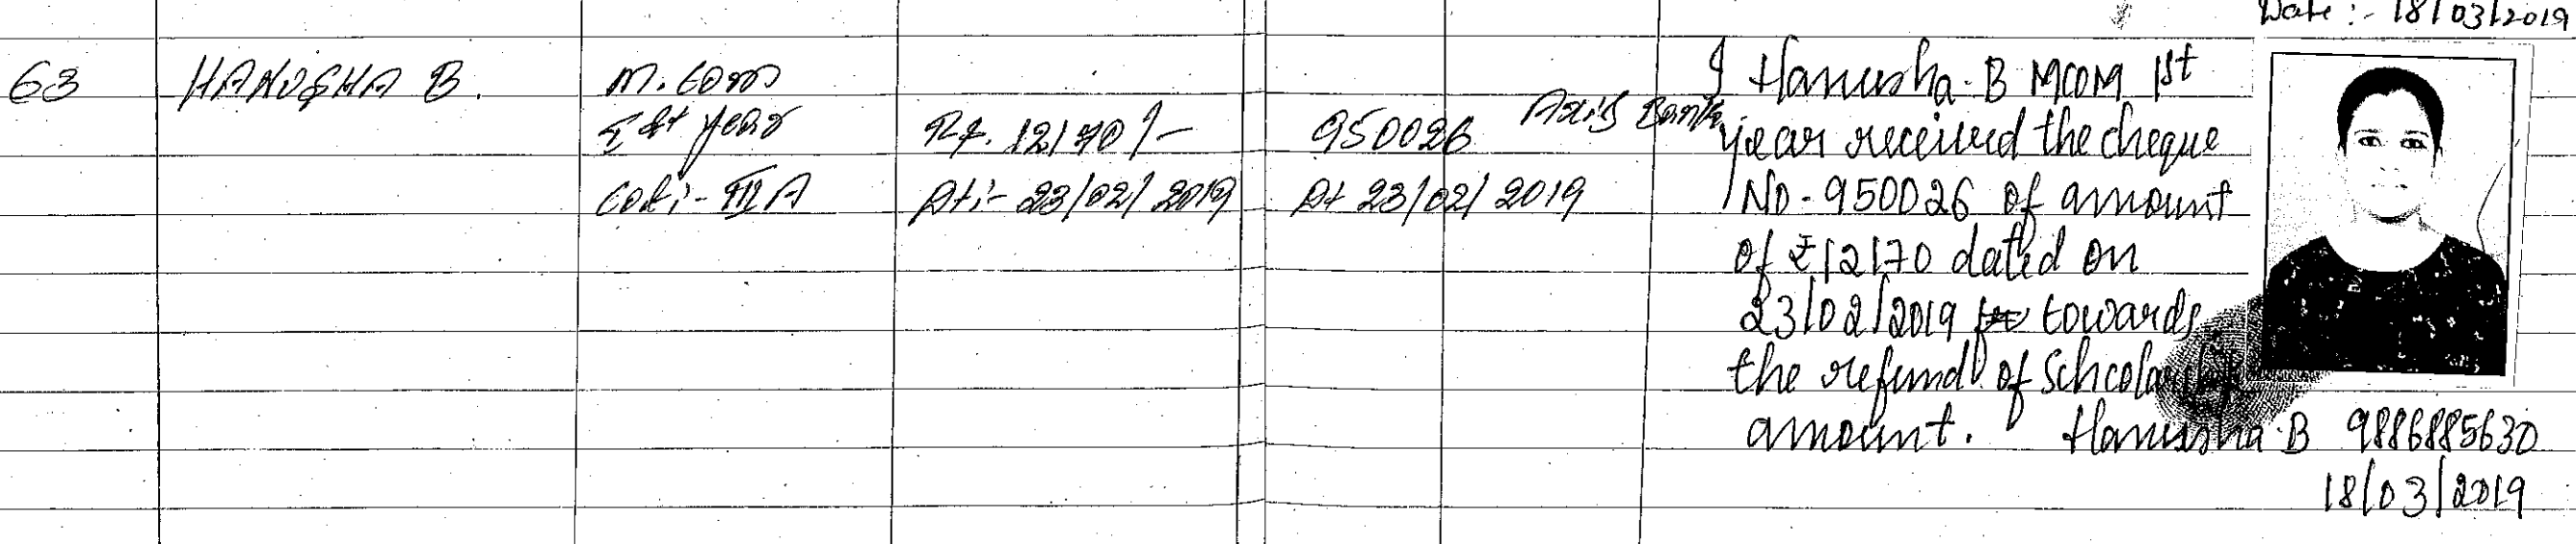 Date :- 18/03/2019
63 HANUSHA B. M.Com
Ist year Rs. 12170/- 950026 Axis Bank
Cat:- IIIA Dt:- 23/02/2019 Dt 23/02/2019
I Hanusha.B MCOM 1st
year received the cheque
NO-950026 of amount
of ₹12170 dated on
23/02/2019 towards
the refund of Schcolarship
amount. Hanusha.B 9886885630
18/03/2019